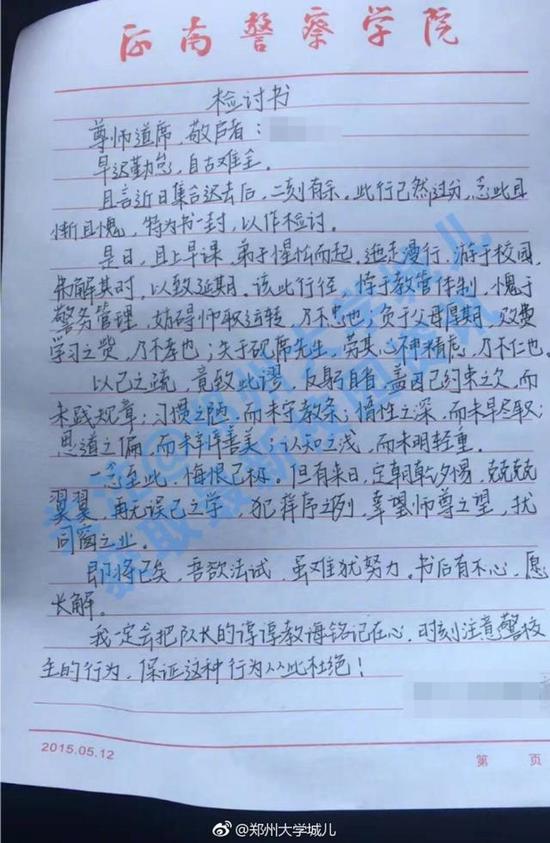 河南警察学院
检讨书
尊师道席，敬启者：
早迟勤怠，自古难全。
且言近日集合迟去后，二刻有余。此行已然过分，念此且
惭且愧，特为书一封，以作检讨。
是日，且上早课，弟子惺忪而起，迤走漫行，游于校园，
未解其时，以致延期。该此行径，悖于教管体制，愧于
警务管理，妨碍师取运转，乃不忠也；负于父母厚期，败费
学习之赀，乃不孝也；失于砚席先生，劳其心神精虑，乃不仁也。
以己之疏，竟致此谬，反躬自省，盖因己约束之欠，而
未践规章；习惯之陋，而未守教条；惰性之深，而未早尽取；
思道之偏，而未辛详善美；认知之浅，而未明轻重。
一念至此，悔恨已极。但有来日，定朝乾夕惕，兢兢
翼翼，再无误己之学，犯庠序之列，辜望师尊之望，扰
同窗之业。
即将已矣，吾欲法试，虽难犹努力。书后有不心，愿
长解。
我一定会把队长的谆谆教诲铭记在心，时刻注意警校
生的行为，保证这种行为从此杜绝！
2015.05.12
第 页
@郑州大学城儿